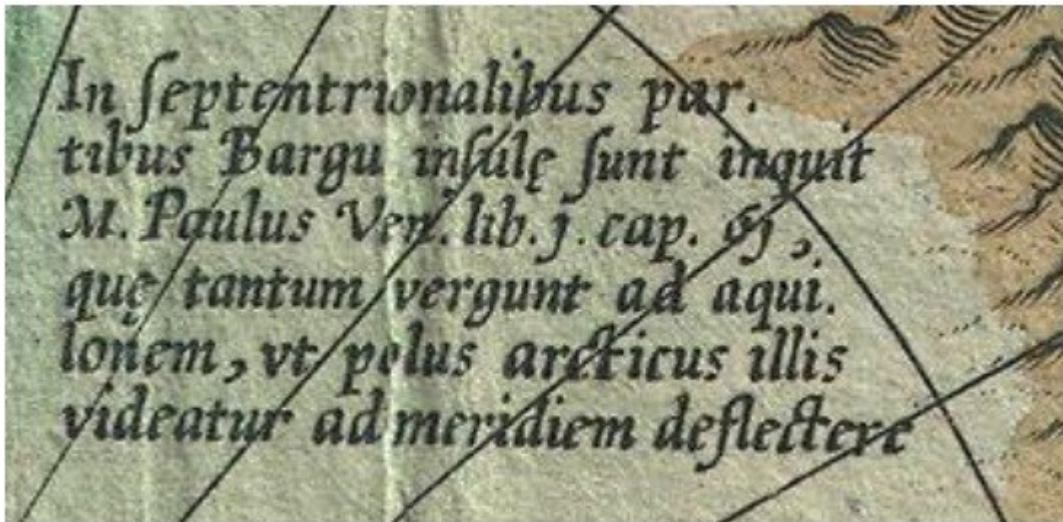 In septentrionalibus par.
tibus Bargu insulę sunt inquit
M. Paulus Ven. lib. j. cap. 61,
quę tantum vergunt ad aqui.
lonem, vt polus arcticus illis
videatur ad meridiem deflectere